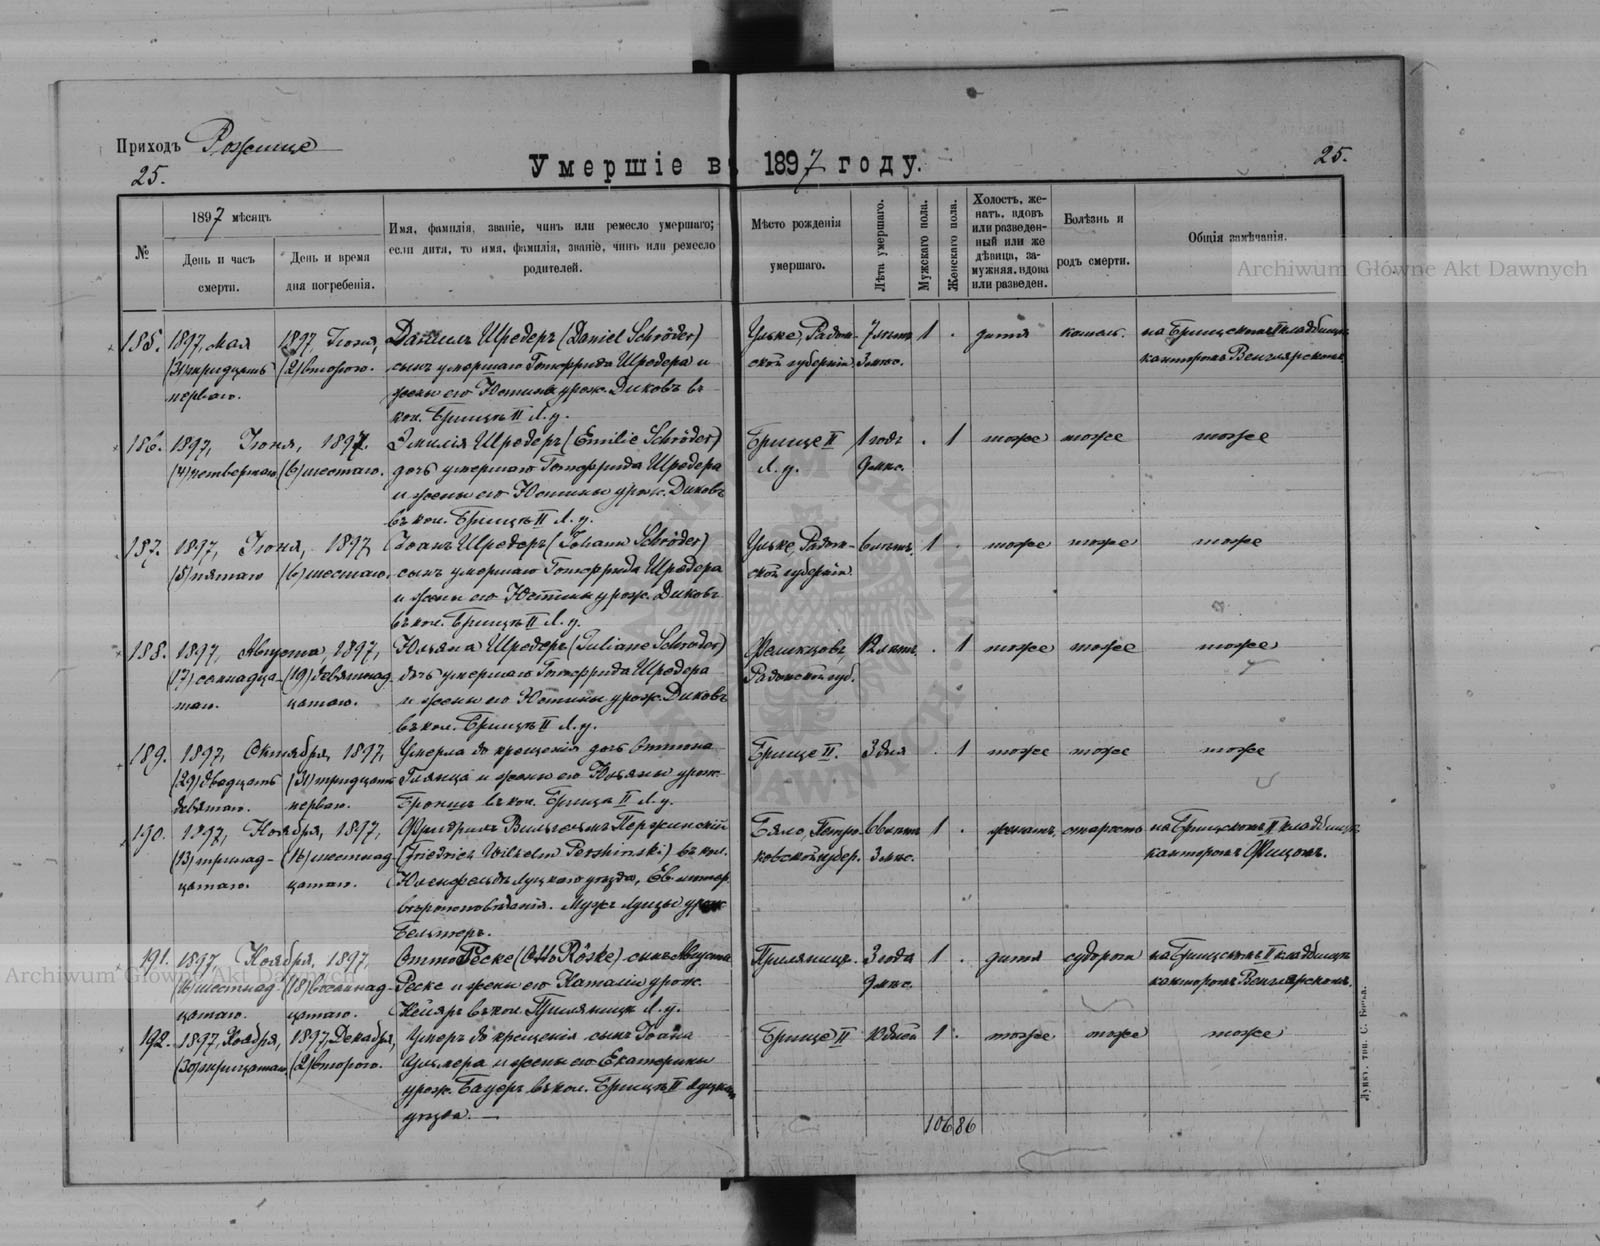 Приходъ Рожище
25.
Умершіе въ 1897 году.
25.
№
1897 мѣсяцъ
День и часъ смерти.
День и время дня погребенія.
Имя, фамилія, званіе, чинъ или ремесло умершаго;
если дитя, то имя, фамилія, званіе, чинъ или ремесло
родителей.
Мѣсто рожденія
умершаго.
Лѣта умершаго.
Мужскаго пола.
Женскаго пола.
Холостъ, же-
натъ, вдовъ
или разведен-
ный или же
дѣвица, за-
мужняя, вдова
или разведен.
Болѣзнь и
родъ смерти.
Общія замѣчанія.
Archiwum Główne Akt Dawnych
185. 1897, Мая 1897 Іюня, Даніилъ Шредеръ (Daniel Schröder) Радом- 7 лѣтъ 1 . дитя кашель. на Брищскомъ II кладбищѣ
(31) тридцать (2) второго. сынъ умершаго Готфрида Шредера и ской губерніи. 3 мѣс. канторомъ Венглярскимъ
перваго. жены его Юстины урож. Диковъ въ
кол. Брищѣ II Л. у.
186. 1897, Іюня, 1897. Эмилія Шредеръ (Emilie Schröder) Брище II 1 годъ . 1 тоже тоже тоже
(4) четвертаго (6) шестаго. дочь умершаго Готфрида Шредера Л. у. 9 мѣс.
и жены его Юстины урож. Диковъ
въ кол. Брищѣ II Л. у.
187. 1897, Іюня, 1897, Іоанъ Шредеръ (Johann Schröder) Радом- 6 лѣтъ 1 . тоже тоже тоже
(5) пятаго (6) шестаго, сынъ умершаго Готфрида Шредера ской губерніи.
и жены его Юстины урож. Диковъ
въ кол. Брищѣ II Л. у.
188. 1897, Августа, 1897, Юльяна Шредеръ (Juliane Schröder) 12 лѣтъ . 1 тоже тоже тоже
(17) семнадца- (19) девятнад- дочь умершаго Готфрида Шредера Радомской губ.
таго. цатаго. и жены его Юстины урож. Диковъ
въ кол. Брищѣ II Л. у.
189. 1897, Октября, 1897, Умерла до крещенія дочь Оттона Брище II. 3 дня . 1 тоже тоже тоже
(29) двадцать (31) тридцать и жены его Юльяны урож.
девятаго. перваго. въ кол. Брищѣ II Л. у.
190. 1897, Ноября, 1897, Фридрихъ Вильгельмъ Першинскій Петро- 66 лѣтъ 1 . женатъ. старость на Брищскомъ II кладбищѣ
(13) тринад- (16) шестнад- (Friedrich Wilhelm Pershinski) въ кол. ковской губер. 3 мѣс. канторомъ
цатаго. цатаго. Луцкаго уѣзда, Ев. лютер.
вѣроисповѣданія. Мужъ Луизы урож.
191. 1897, Ноября, 1897, Отто Реске (Otto Röske) сынъ Августа 3 года 1 . дитя судорога на Брищскомъ II кладбищѣ
(16) шестнад- (18) восемнад- Реске и жены его Наталіи урож. 9 мѣс. канторомъ Венглярскимъ.
цатаго. цатаго. въ кол. Л. у.
192. 1897, Ноября, 1897, Декабря, Умеръ до крещенія сынъ Іоана Брище II 1 . тоже тоже тоже
(30) тридцатаго (2) второго. и жены его Екатерины
урож. Бауеръ въ кол. Брищѣ II Луцкаго
уѣзда.
106 86
Луцкъ, тип. С. Бокса.
Archiwum Główne Akt Dawnych